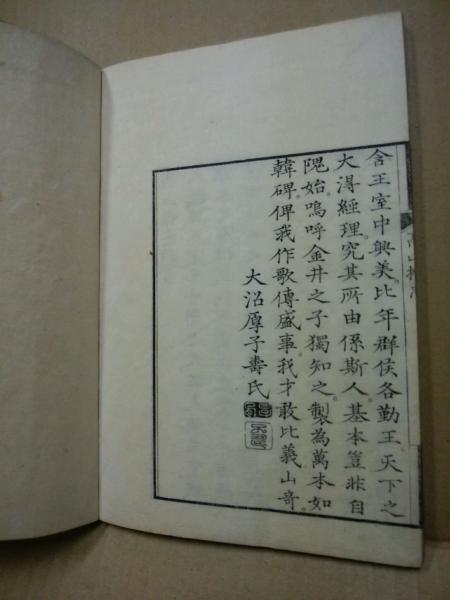 含王室中興美。比年群侯各勤王天下之
大得經理究其所由係斯人。基本豈非自
隗始。嗚呼金井之子獨知之。製為萬本如
韓碑。俾我作歌傳盛事。我才敢比義山奇。
大沼厚子壽氏